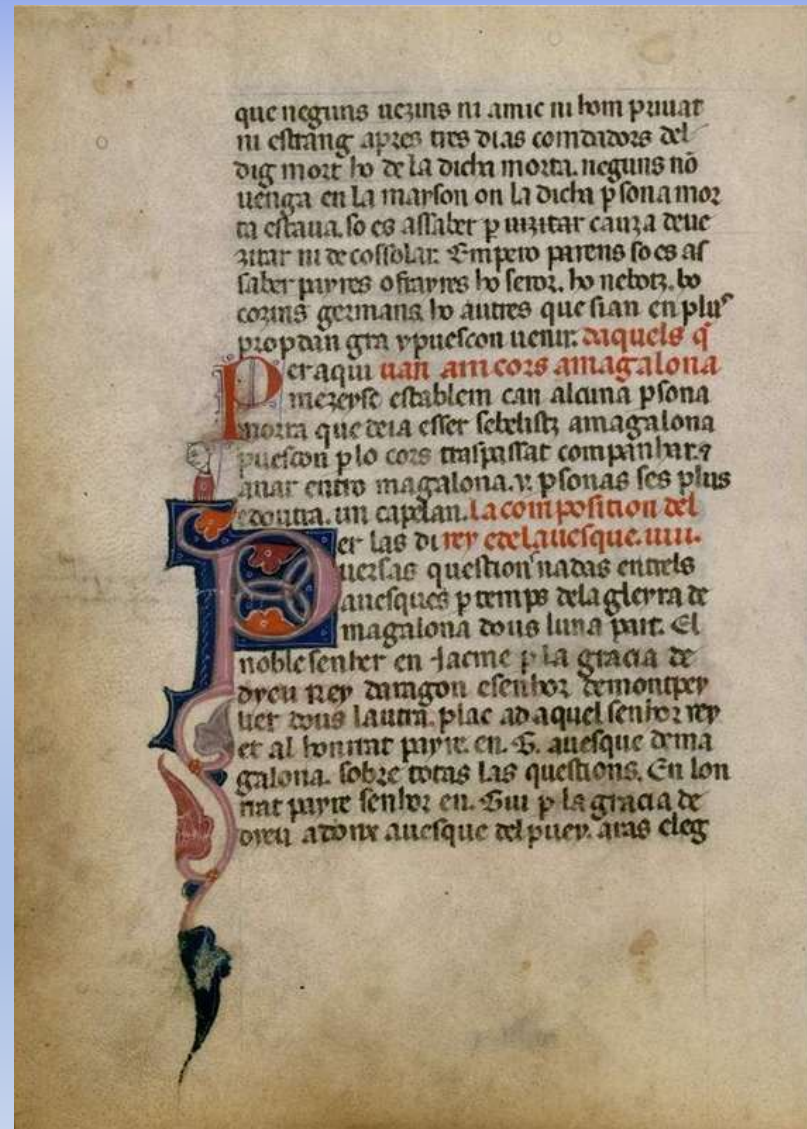 que neguns uezins ni amic ni hom priuat
ni estrang apres tres dias comdadors del
dig mort ho de la dicha morta. neguns nō
uenga en la mayson on la dicha psona mor
ta estaua. so es assaber p uizitar cauza deue
zitar ni de cossolar. Empero parens so es as
saber payres o frayres ho seror. ho nebotz. ho
cozins germans ho autres que sian en plus
propdan gra y puescon uenir. daquels q̄
Per aqui uan am cors a magalona
mezeyse establem can alcuna psona
morta que deia esser sebelisz a magalona
puescon p lo cors traspassat companhar. ⁊
anar entro magalona. v. psonas ses plus
e doutra. un capelan. la composition del
Per las di rey e del auesque. uiii.
uersas question nadas entrels
auesques p temps de la gleyza de
magalona dous luna part. El
noble senher en Jacme p la gracia de
dyeu rey daragon e senhor de montpey
lier dous lautra. plac ad aquel senhor rey
et al honrat payre. en. G. auesque de ma
galona. sobre totas las questions. En lon
rat payre senhor en. Gui p la gracia de
dyeu adonx auesque del puey. aras eleg